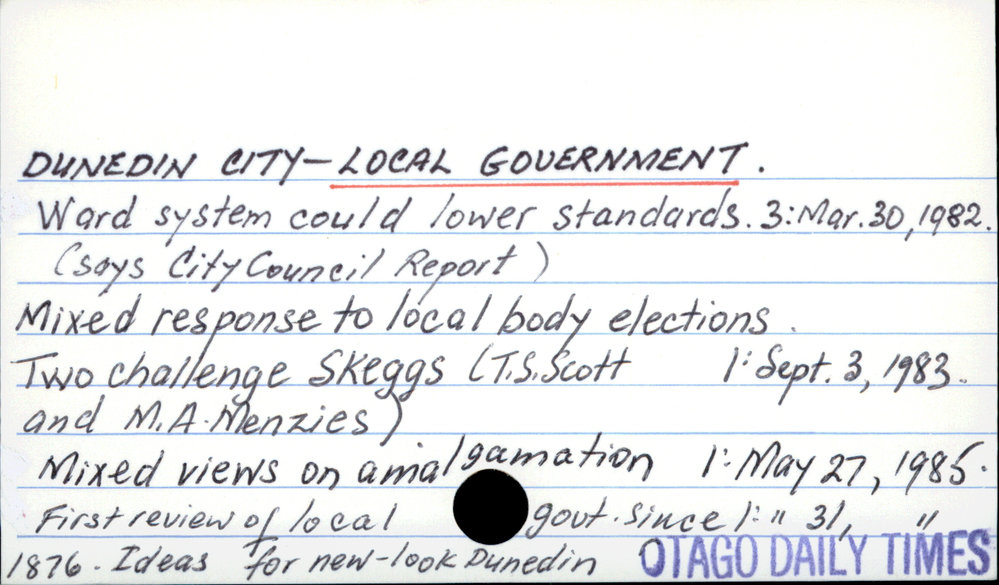 DUNEDIN CITY — LOCAL GOVERNMENT.
Ward system could lower standards. 3: Mar. 30, 1982.
(says City Council Report)
Mixed response to local body elections.
Two challenge Skeggs (T.S. Scott 1: Sept. 3, 1983.
and M.A. Menzies)
Mixed views on amalgamation 1: May 27, 1985.
First review of local govt. since 1: " 31, "
1876. Ideas for new-look Dunedin OTAGO DAILY TIMES